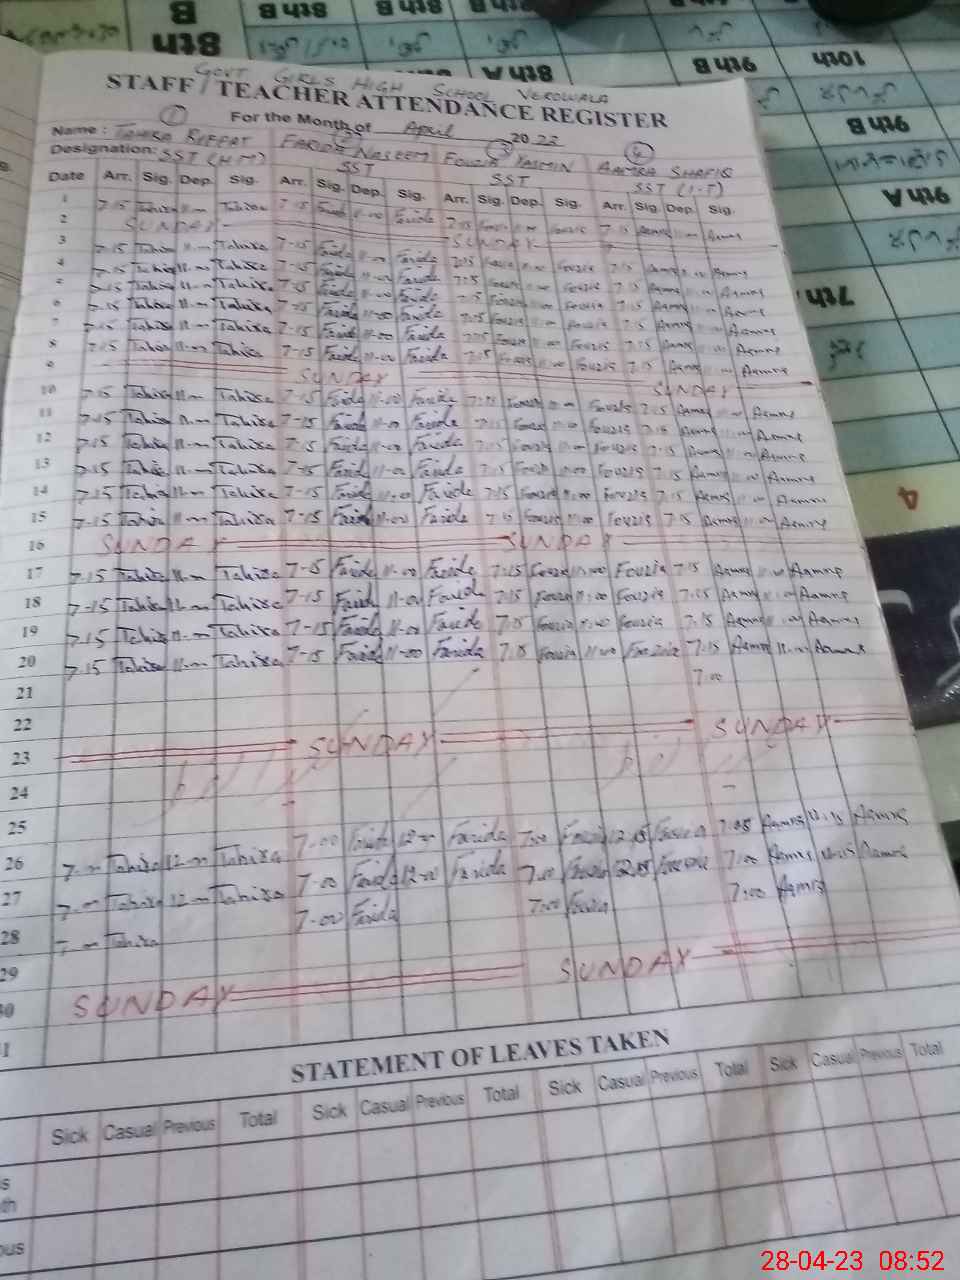 8th B 8th B 8th B 8th B B
8th 8th A 9th B 10th
GOVT GIRLS HIGH SCHOOL VEROWALA
STAFF / TEACHER ATTENDANCE REGISTER
For the Month of April 2023
Name : TAHIRA RIFFAT FARIDA NASEEM FOUZIA YASMIN AAMRA SHAFIQ
Designation: SST (H.M) SST SST SST (I.T)
Date Arr. Sig. Dep. Sig. Arr. Sig. Dep. Sig. Arr. Sig. Dep. Sig. Arr. Sig. Dep. Sig.
1 7-15 Tahira 11-00 Tahira 7-15 Farida 11-00 Farida 7:15 Fouzia 11:00 Fouzia 7:15 Aamra 11:00 Aamra
2 SUNDAY SUNDAY
3 7-15 Tahira 11-00 Tahira 7-15 Farida 11-00 Farida 7:15 Fouzia 11:00 Fouzia 7:15 Aamra 11:00 Aamra
4 7-15 Tahira 11-00 Tahira 7-15 Farida 11-00 Farida 7:15 Fouzia 11:00 Fouzia 7:15 Aamra 11:00 Aamra
5 7-15 Tahira 11-00 Tahira 7-15 Farida 11-00 Farida 7:15 Fouzia 11:00 Fouzia 7:15 Aamra 11:00 Aamra
6 7-15 Tahira 11-00 Tahira 7-15 Farida 11-00 Farida 7:15 Fouzia 11:00 Fouzia 7:15 Aamra 11:00 Aamra
7 7-15 Tahira 11-00 Tahira 7-15 Farida 11-00 Farida 7:15 Fouzia 11:00 Fouzia 7:15 Aamra 11:00 Aamra
8 7-15 Tahira 11-00 Tahira 7-15 Farida 11-00 Farida 7:15 Fouzia 11:00 Fouzia 7:15 Aamra 11:00 Aamra
9 SUNDAY SUNDAY
10 7-15 Tahira 11-00 Tahira 7-15 Farida 11-00 Farida 7:15 Fouzia 11:00 Fouzia 7:15 Aamra 11:00 Aamra
11 7-15 Tahira 11-00 Tahira 7-15 Farida 11-00 Farida 7:15 Fouzia 11:00 Fouzia 7:15 Aamra 11:00 Aamra
12 7-15 Tahira 11-00 Tahira 7-15 Farida 11-00 Farida 7:15 Fouzia 11:00 Fouzia 7:15 Aamra 11:00 Aamra
13 7-15 Tahira 11-00 Tahira 7-15 Farida 11-00 Farida 7:15 Fouzia 11:00 Fouzia 7:15 Aamra 11:00 Aamra
14 7-15 Tahira 11-00 Tahira 7-15 Farida 11-00 Farida 7:15 Fouzia 11:00 Fouzia 7:15 Aamra 11:00 Aamra
15 7-15 Tahira 11-00 Tahira 7-15 Farida 11-00 Farida 7:15 Fouzia 11:00 Fouzia 7:15 Aamra 11:00 Aamra
16 SUNDAY SUNDAY
17 7-15 Tahira 11-00 Tahira 7-15 Farida 11-00 Farida 7:15 Fouzia 11:00 Fouzia 7:15 Aamra 11:00 Aamra
18 7-15 Tahira 11-00 Tahira 7-15 Farida 11-00 Farida 7:15 Fouzia 11:00 Fouzia 7:15 Aamra 11:00 Aamra
19 7-15 Tahira 11-00 Tahira 7-15 Farida 11-00 Farida 7:15 Fouzia 11:00 Fouzia 7:15 Aamra 11:00 Aamra
20 7-15 Tahira 11-00 Tahira 7-15 Farida 11-00 Farida 7:15 Fouzia 11:00 Fouzia 7:15 Aamra 11:00 Aamra
21 7:00
22
23 SUNDAY SUNDAY
24
25
26 7-00 Tahira 12-00 Tahira 7-00 Farida 12-00 Farida 7:00 Fouzia 12:15 Fouzia 7:05 Aamra 12:15 Aamra
27 7-00 Tahira 12-00 Tahira 7-00 Farida 12-00 Farida 7:00 Fouzia 12:15 Fouzia 7:00 Aamra 12:15 Aamra
28 7-00 Tahira 7-00 Farida 7:00 Fouzia 7:00 Aamra
29
30 SUNDAY SUNDAY
STATEMENT OF LEAVES TAKEN
Sick Casual Previous Total Sick Casual Previous Total Sick Casual Previous Total Sick Casual Previous Total
9th B
9th A
7th
4
28-04-23 08:52